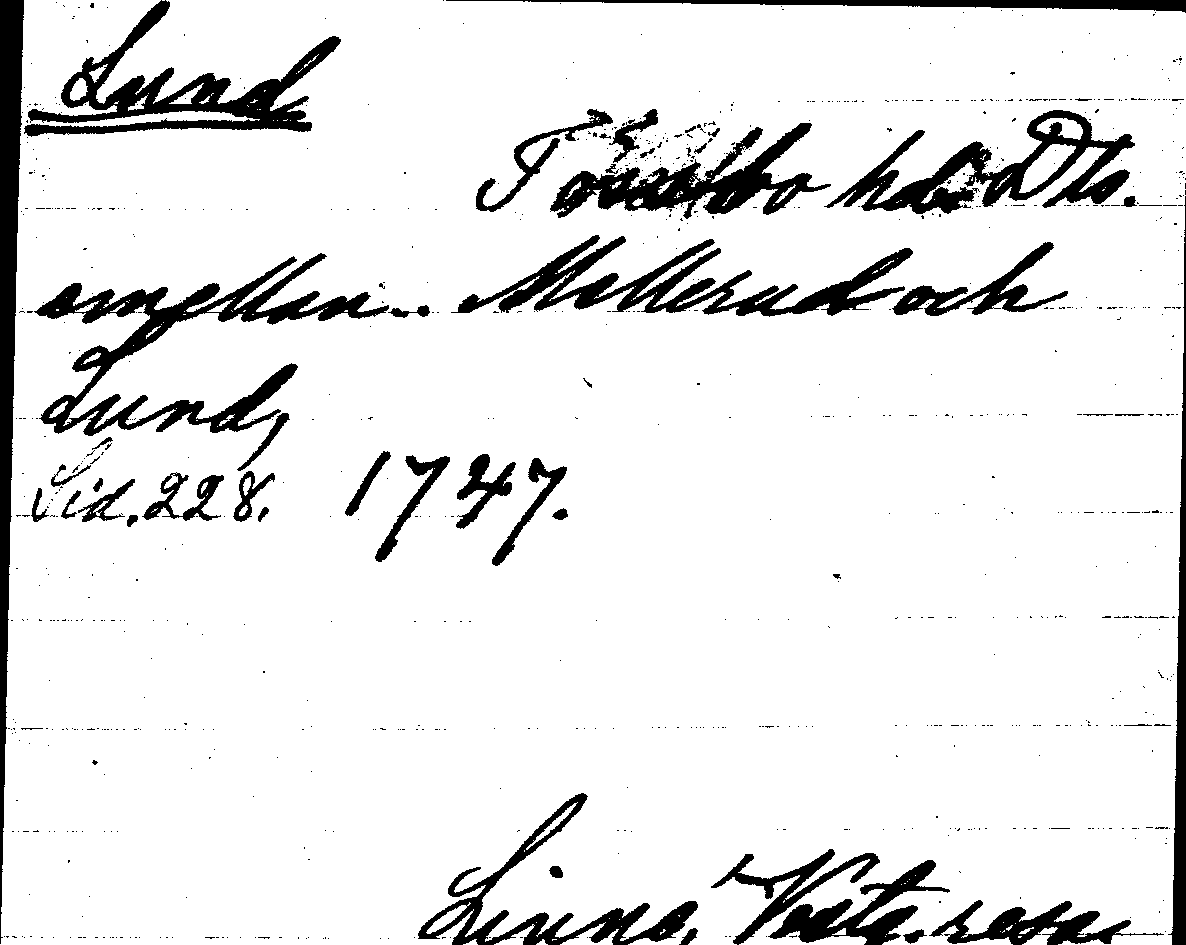 Lund
hd. Dls.
emellan .. Mellerud och
Lund,
Sid. 228. 1747.
Linné, Västg. resa